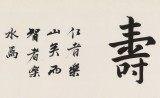 壽
仁者樂
山矣而
智者樂
水焉